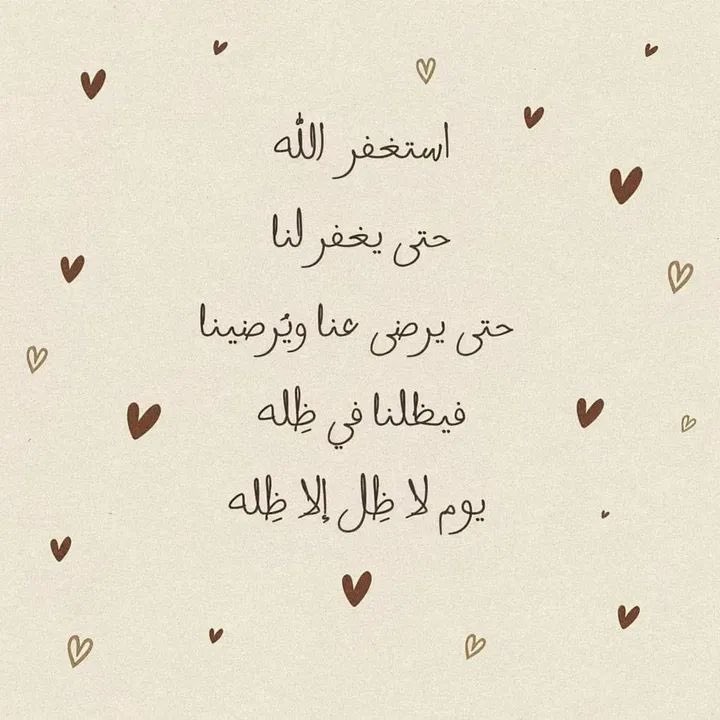 استغفر الله
حتى يغفر لنا
حتى يرضى عنا ويُرضينا
فيظلنا في ظِله
يوم لا ظِل إلا ظِله